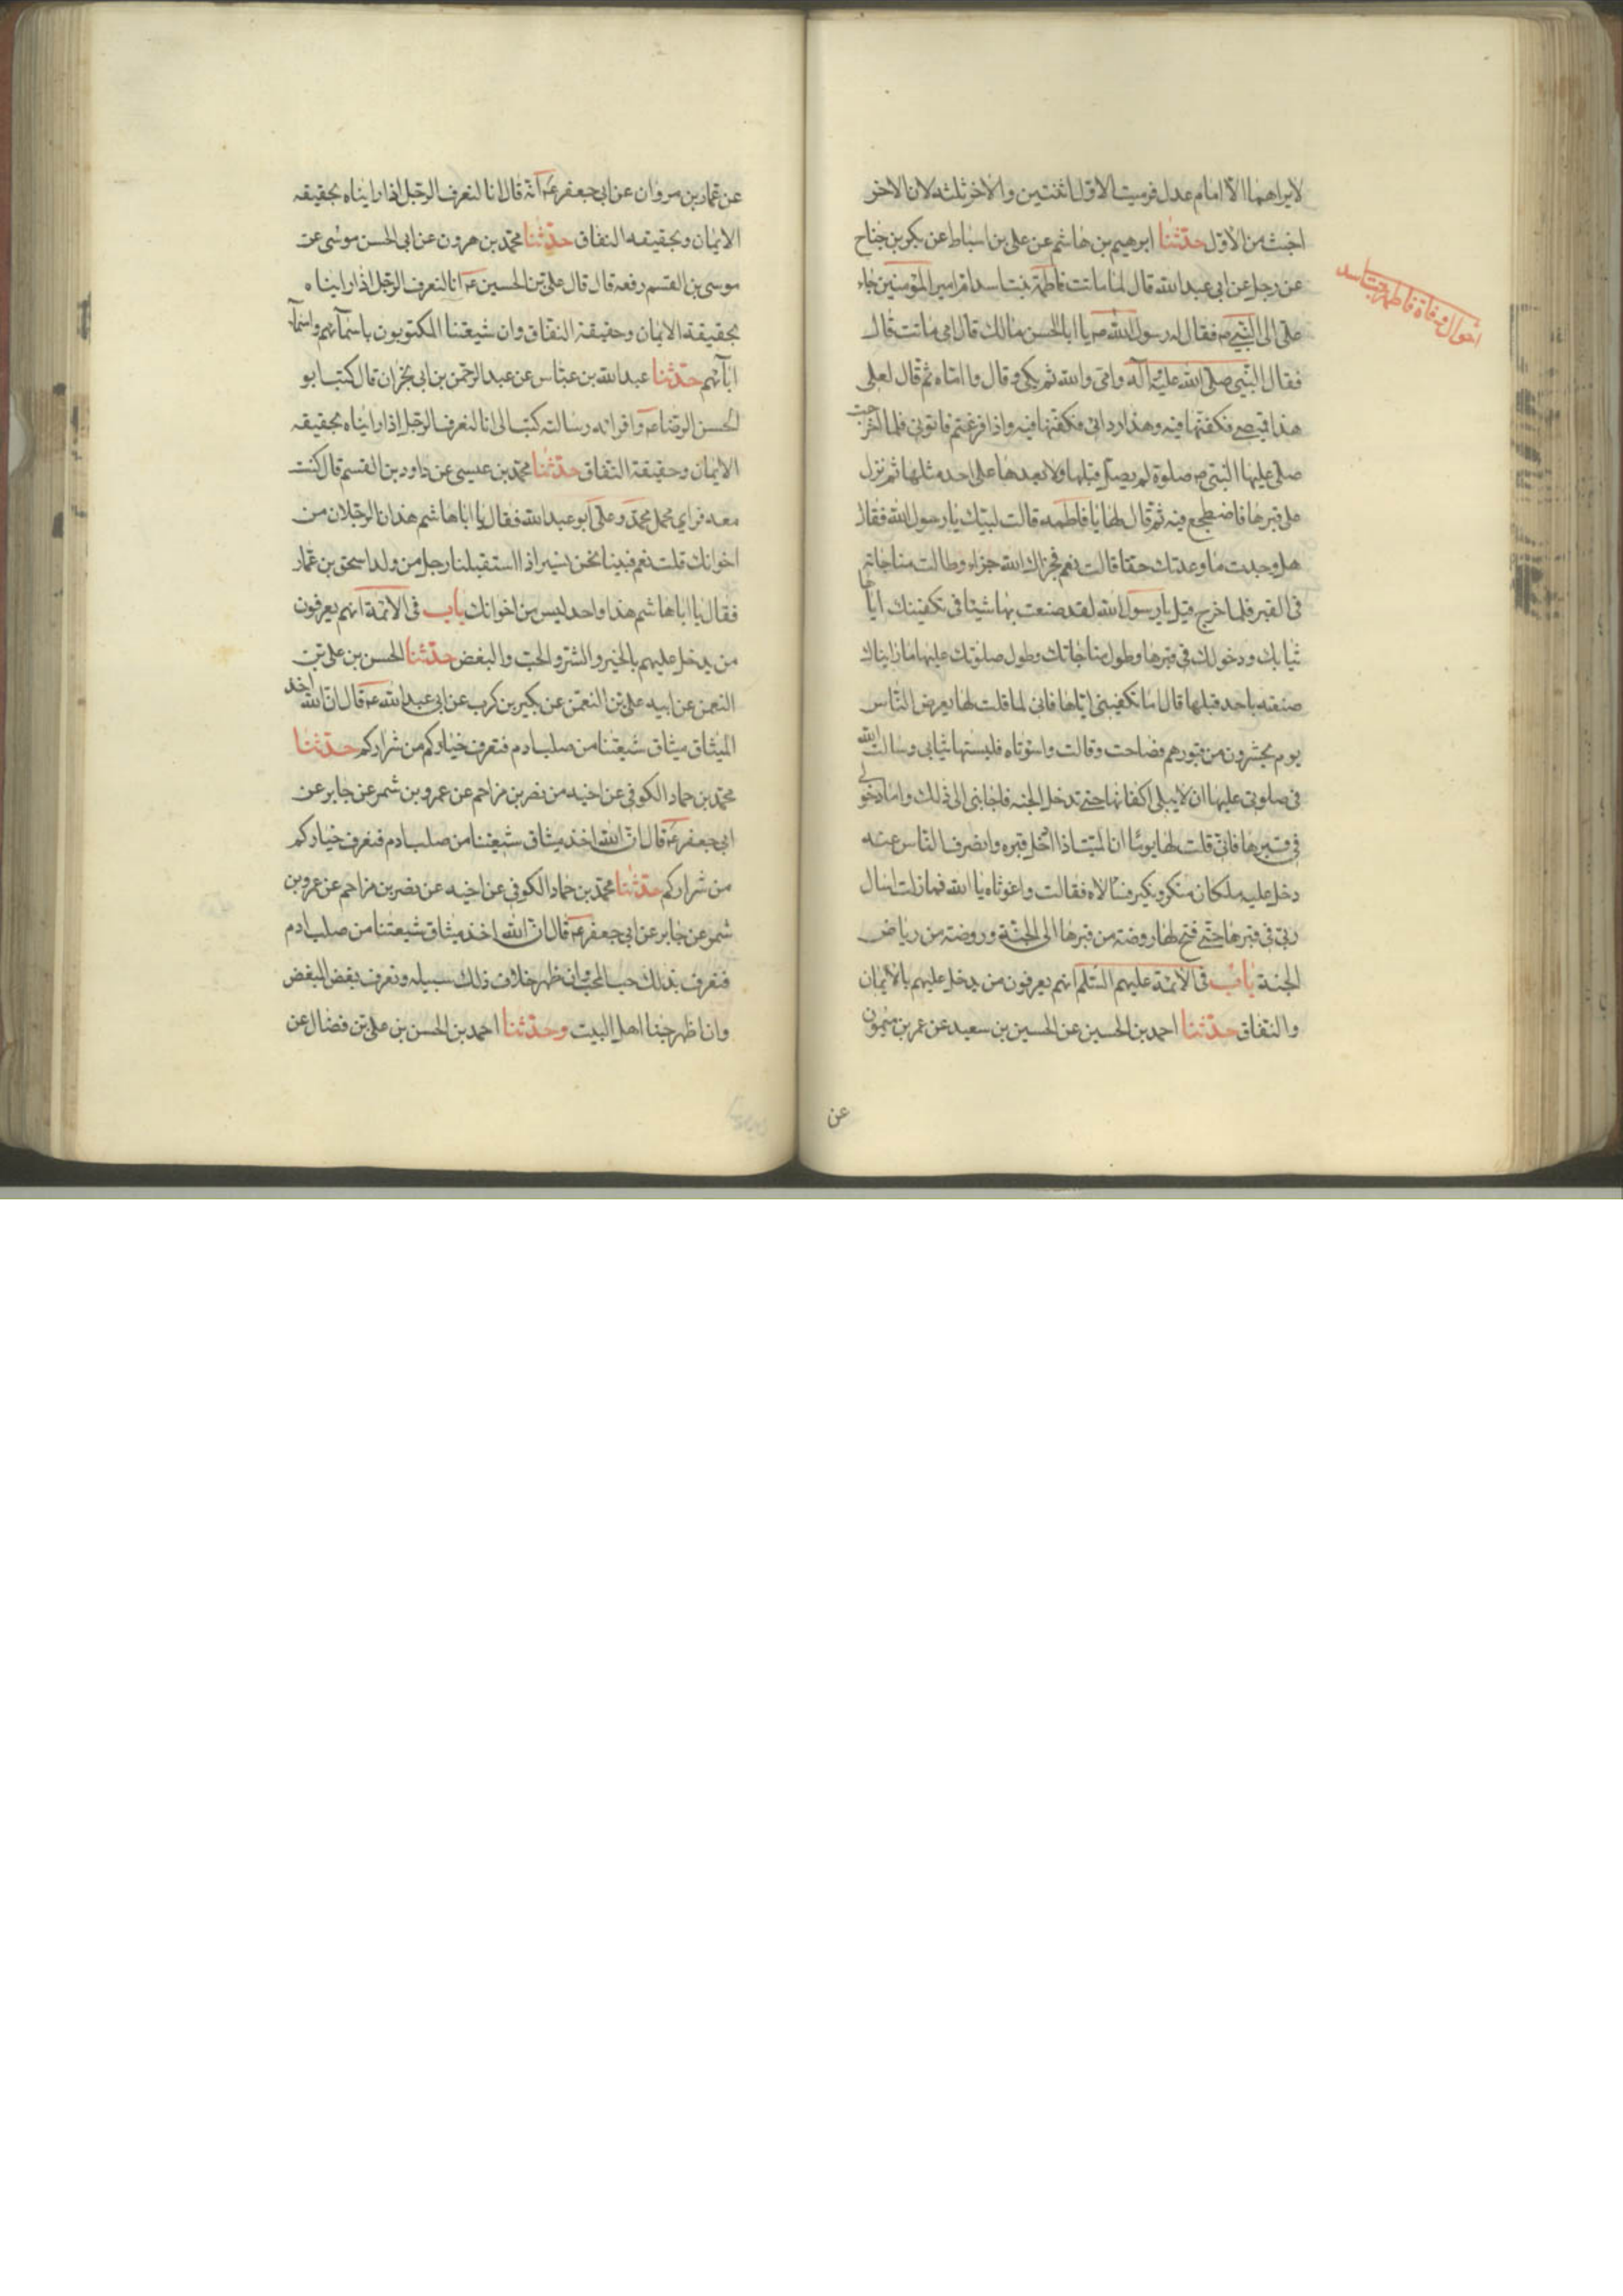 لايراهما الا امام عدل فرميت الاول اثنتين والاخر ثلثه لان الاخر
اخبث من الاول حدّثنا ابرهيم بن هاشم عن على بن اسباط عن بكر بن جناح
عن رجل عن ابى عبدالله قال لما ماتت فاطمة بنت اسد ام امير المؤمنين جاء
على الى النبى ص فقال له رسول الله ص يا ابا الحسن مالك قال امى ماتت قال
فقال النبى صلى الله عليه وآله وامى والله ثم بكى وقال وا اماه ثم قال لعلى
هذا قميصى فكفنها فيه وهذا ردائى فكفنها فيه واذا فرغتم فاتونى فلما اخرجت
صلى عليها النبى ص صلوة لم يصل قبلها ولا بعدها على احد مثلها ثم نزل
على قبرها فاضطجع فيه ثم قال لها يا فاطمه قالت لبيك يا رسول الله فقال
هل وجدت ما وعدتك حقا قالت نعم فجزاك الله جزاء وطالت مناجاته
فى القبر فلما خرج قيل يا رسول الله لقد صنعت بها شيئا فى تكفينك اياها
ثيابك ودخولك فى قبرها وطول مناجاتك وطول صلوتك عليها ما رايناك
صنعته باحد قبلها قال اما تكفينى اياها فانى لما قلت لها يعرض الناس
يوم يحشرون من قبورهم فصاحت وقالت واسوتاه فلبستها ثيابى وسالت الله
فى صلوتى عليها ان لا يبلى اكفانها حتى تدخل الجنه فاجابنى الى ذلك واما دخولى
فى قبرها فانى قلت لها يوما ان الميت اذا ادخل قبره وانصرف الناس عنه
دخل عليه ملكان منكر ونكير فسالاه فقالت واغوثاه يا الله فمازلت اسال
ربى فى قبرها حتى فتح لها روضة من قبرها الى الجنة وروضة من رياض
الجنة باب فى الائمة عليهم السلم انهم يعرفون من يدخل عليهم بالايمان
والنفاق حدّثنا احمد بن الحسين عن الحسين بن سعيد عن عمر بن ميمون
عن
احوال وفاة فاطمة بنت اسد
عن عمار بن مروان عن ابى جعفر ع انه قال انا لنعرف الرجل اذا رايناه بحقيقه
الايمان وبحقيقه النفاق حدّثنا محمد بن هرون عن ابى الحسن موسى عن
موسى بن القسم رفعه قال قال على بن الحسين ع انا لنعرف الرجل اذا رايناه
بحقيقة الايمان وحقيقة النفاق وان شيعتنا المكتوبون باسمآئهم واسمآء
ابآئهم حدّثنا عبدالله بن عباس عن عبد الرحمن بن ابى نجران قال كتب ابو
الحسن الرضا ع واقرانيه رسالته كتب الى انا لنعرف الرجل اذا رايناه بحقيقه
الايمان وحقيقة النفاق حدّثنا محمد بن عيسى عن داود بن القسم قال كنت
معه فراى محمل محمد وعلى ابو عبدالله فقال يا اباهاشم هذان الرجلان من
اخوانك قلت نعم فبينا نحن نسير اذا استقبلنا رجل من ولد اسحق بن عمار
فقال يا اباهاشم هذا واحد ليس من اخوانك باب فى الائمة انهم يعرفون
من يدخل عليهم بالخير والشر والحب والبغض حدّثنا الحسن بن على بن
النعمن عن ابيه على بن النعمن عن بكير بن كرب عن ابى عبدالله ع قال ان الله اخذ
الميثاق ميثاق شيعتنا من صلب ادم فنعرف خياركم من شراركم حدّثنا
محمد بن حماد الكوفى عن اخيه من نصر بن مزاحم عن عمرو بن شمر عن جابر عن
ابى جعفر ع قال ان الله اخذ ميثاق شيعتنا من صلب ادم فنعرف خياركم
من شراركم حدّثنا محمد بن حماد الكوفى عن اخيه عن نصر بن مزاحم عن عمرو بن
شمر عن جابر عن ابى جعفر ع قال ان الله اخذ ميثاق شيعتنا من صلب ادم
فنعرف بذلك حب المحب وان ظهر خلاف ذلك سبيله ونعرف بغض المبغض
وان اظهر حبنا اهل البيت وحدّثنا احمد بن الحسن بن على بن فضال عن